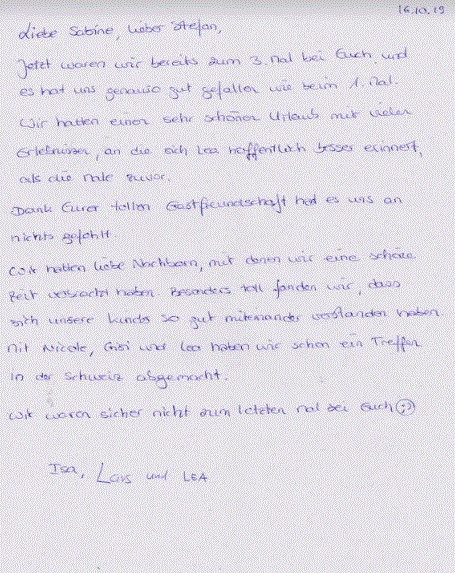 16.10.19
Liebe Sabine, lieber Stefan,
Jetzt waren wir bereits zum 3. Mal bei Euch und
es hat uns genauso gut gefallen wie beim 1. Mal.
Wir hatten einen sehr schönen Urlaub mit vielen
Erlebnissen, an die sich Lea hoffentlich besser erinnert,
als die Male zuvor.
Dank Eurer tollen Gastfreundschaft hat es uns an
nichts gefehlt.
Wir hatten liebe Nachbarn, mit denen wir eine schöne
Zeit verbracht haben. Besonders toll fanden wir, dass
sich unsere Kinder so gut miteinander verstanden haben
Mit Nicole, und Lea haben wir schon ein Treffen
in der Schweiz abgemacht.
Wir waren sicher nicht zum letzten Mal bei Euch
Isa, Lars und LEA